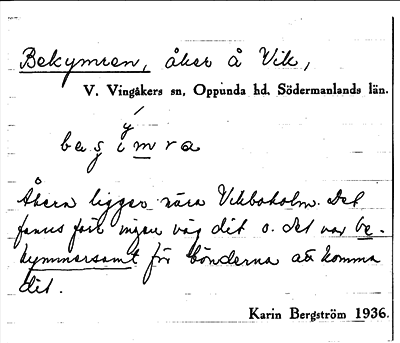 Bekymren, åker å Vik,
V. Vingåkers sn, Oppunda hd, Södermanlands län.
Åkern ligger nära Vikboholm. Det
fanns förr ingen väg dit o. det var be-
kymmersamt för bönderna att komma
dit.
Karin Bergström 1936.